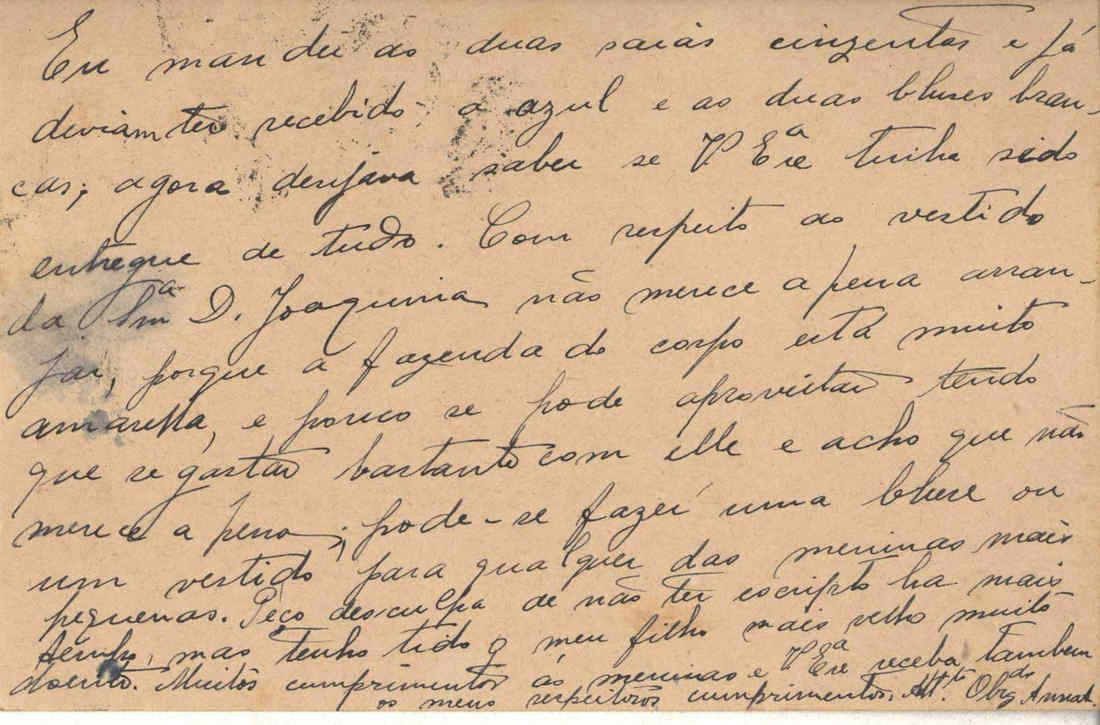 Eu mandei as duas saias cinzentas e já
deviam ter recebido a azul e as duas bluses bran-
cas; agora desejava saber se V Exª tinha sido
entregue de tudo. Com respeito ao vestido
da Smª D. Joaquina não merece a pena arran-
jar, porque a fazenda do corpo está muito
amarella, e pouco se pode aproveitar tendo
que se gastar bastante com elle e acho que não
merece a pena; pode-se fazer uma bluse ou
um vestido para qualquer das meninas mais
pequenas. Peço desculpa de não ter escripto ha mais
tempo, mas tenho tido o meu filho mais velho muito
doente. Muitos cumprimentos ás meninas e V Exª receba tambem
os meus respeitosos cumprimentos. Attª Obrgda